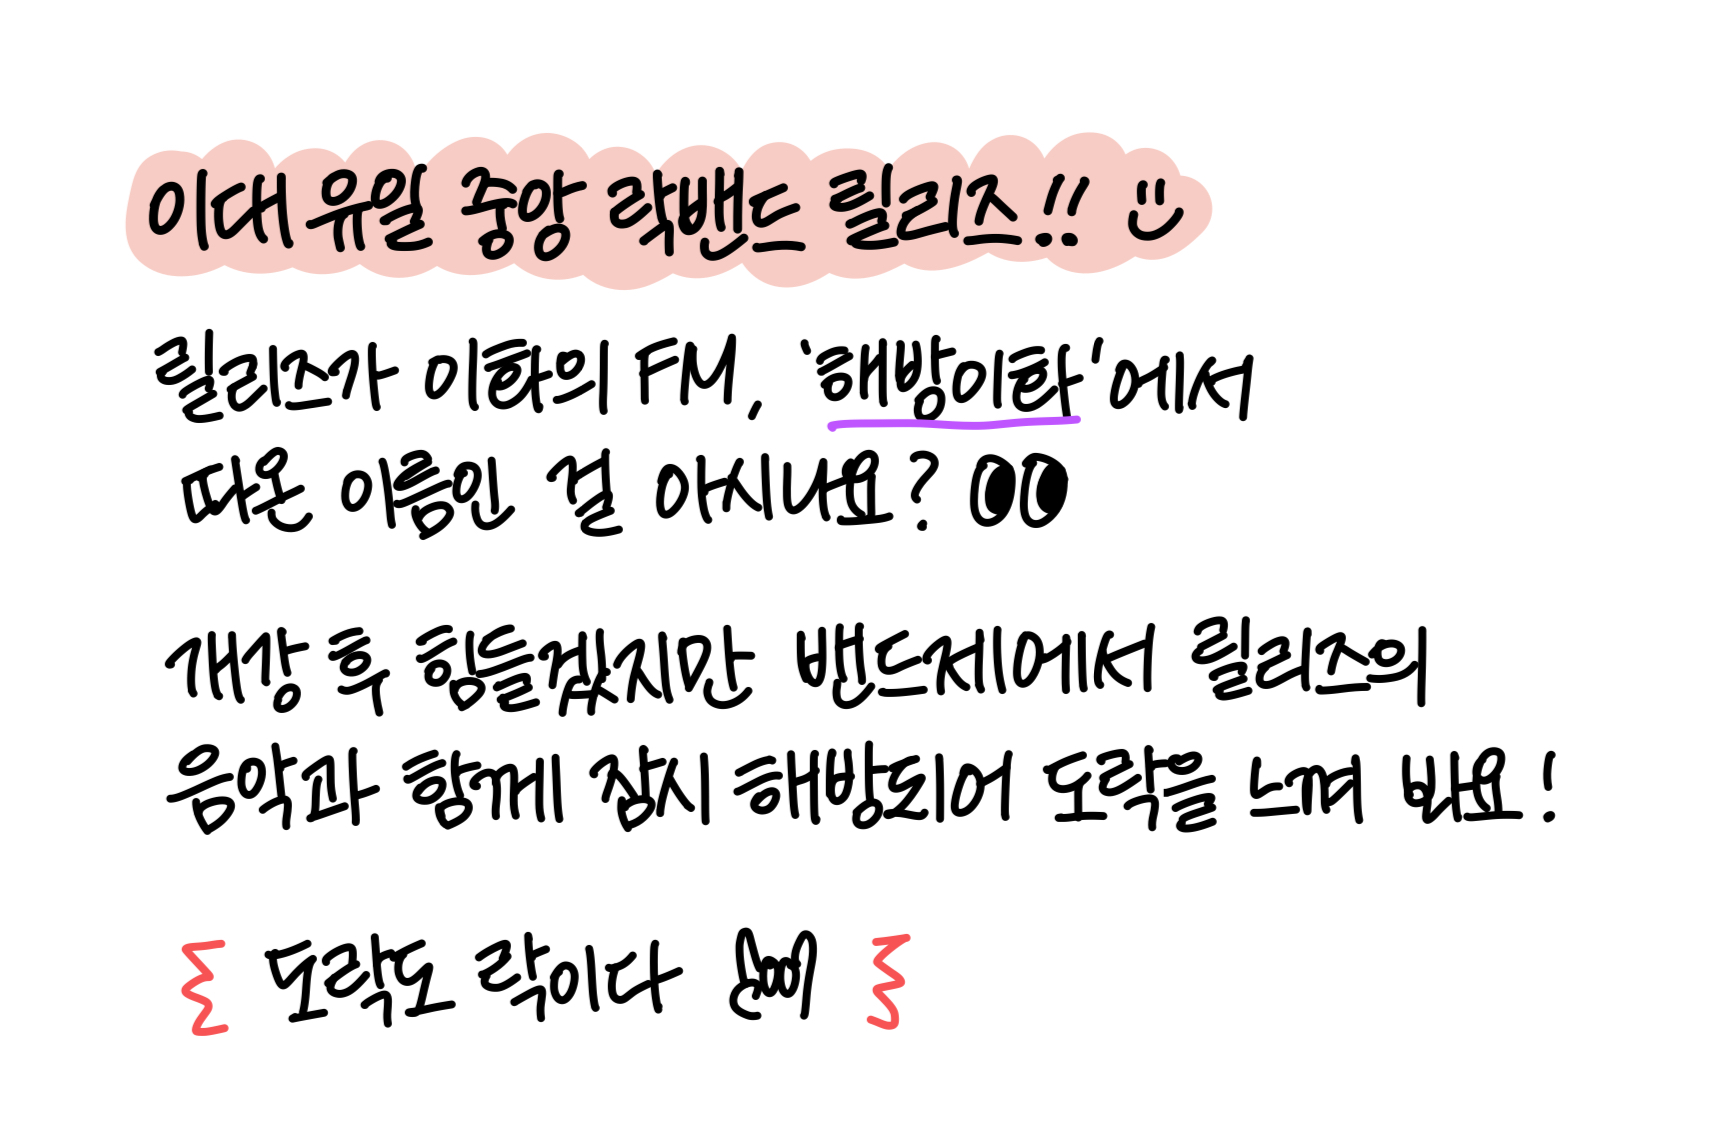 이대 유일 중앙 락밴드 릴리즈!!
릴리즈가 이화의 FM, '해방이화'에서
따온 이름인 걸 아시나요?
개강 후 힘들겠지만 밴드제에서 릴리즈의
음악과 함께 잠시 해방되어 도락을 느껴 봐요!
도락도 락이다